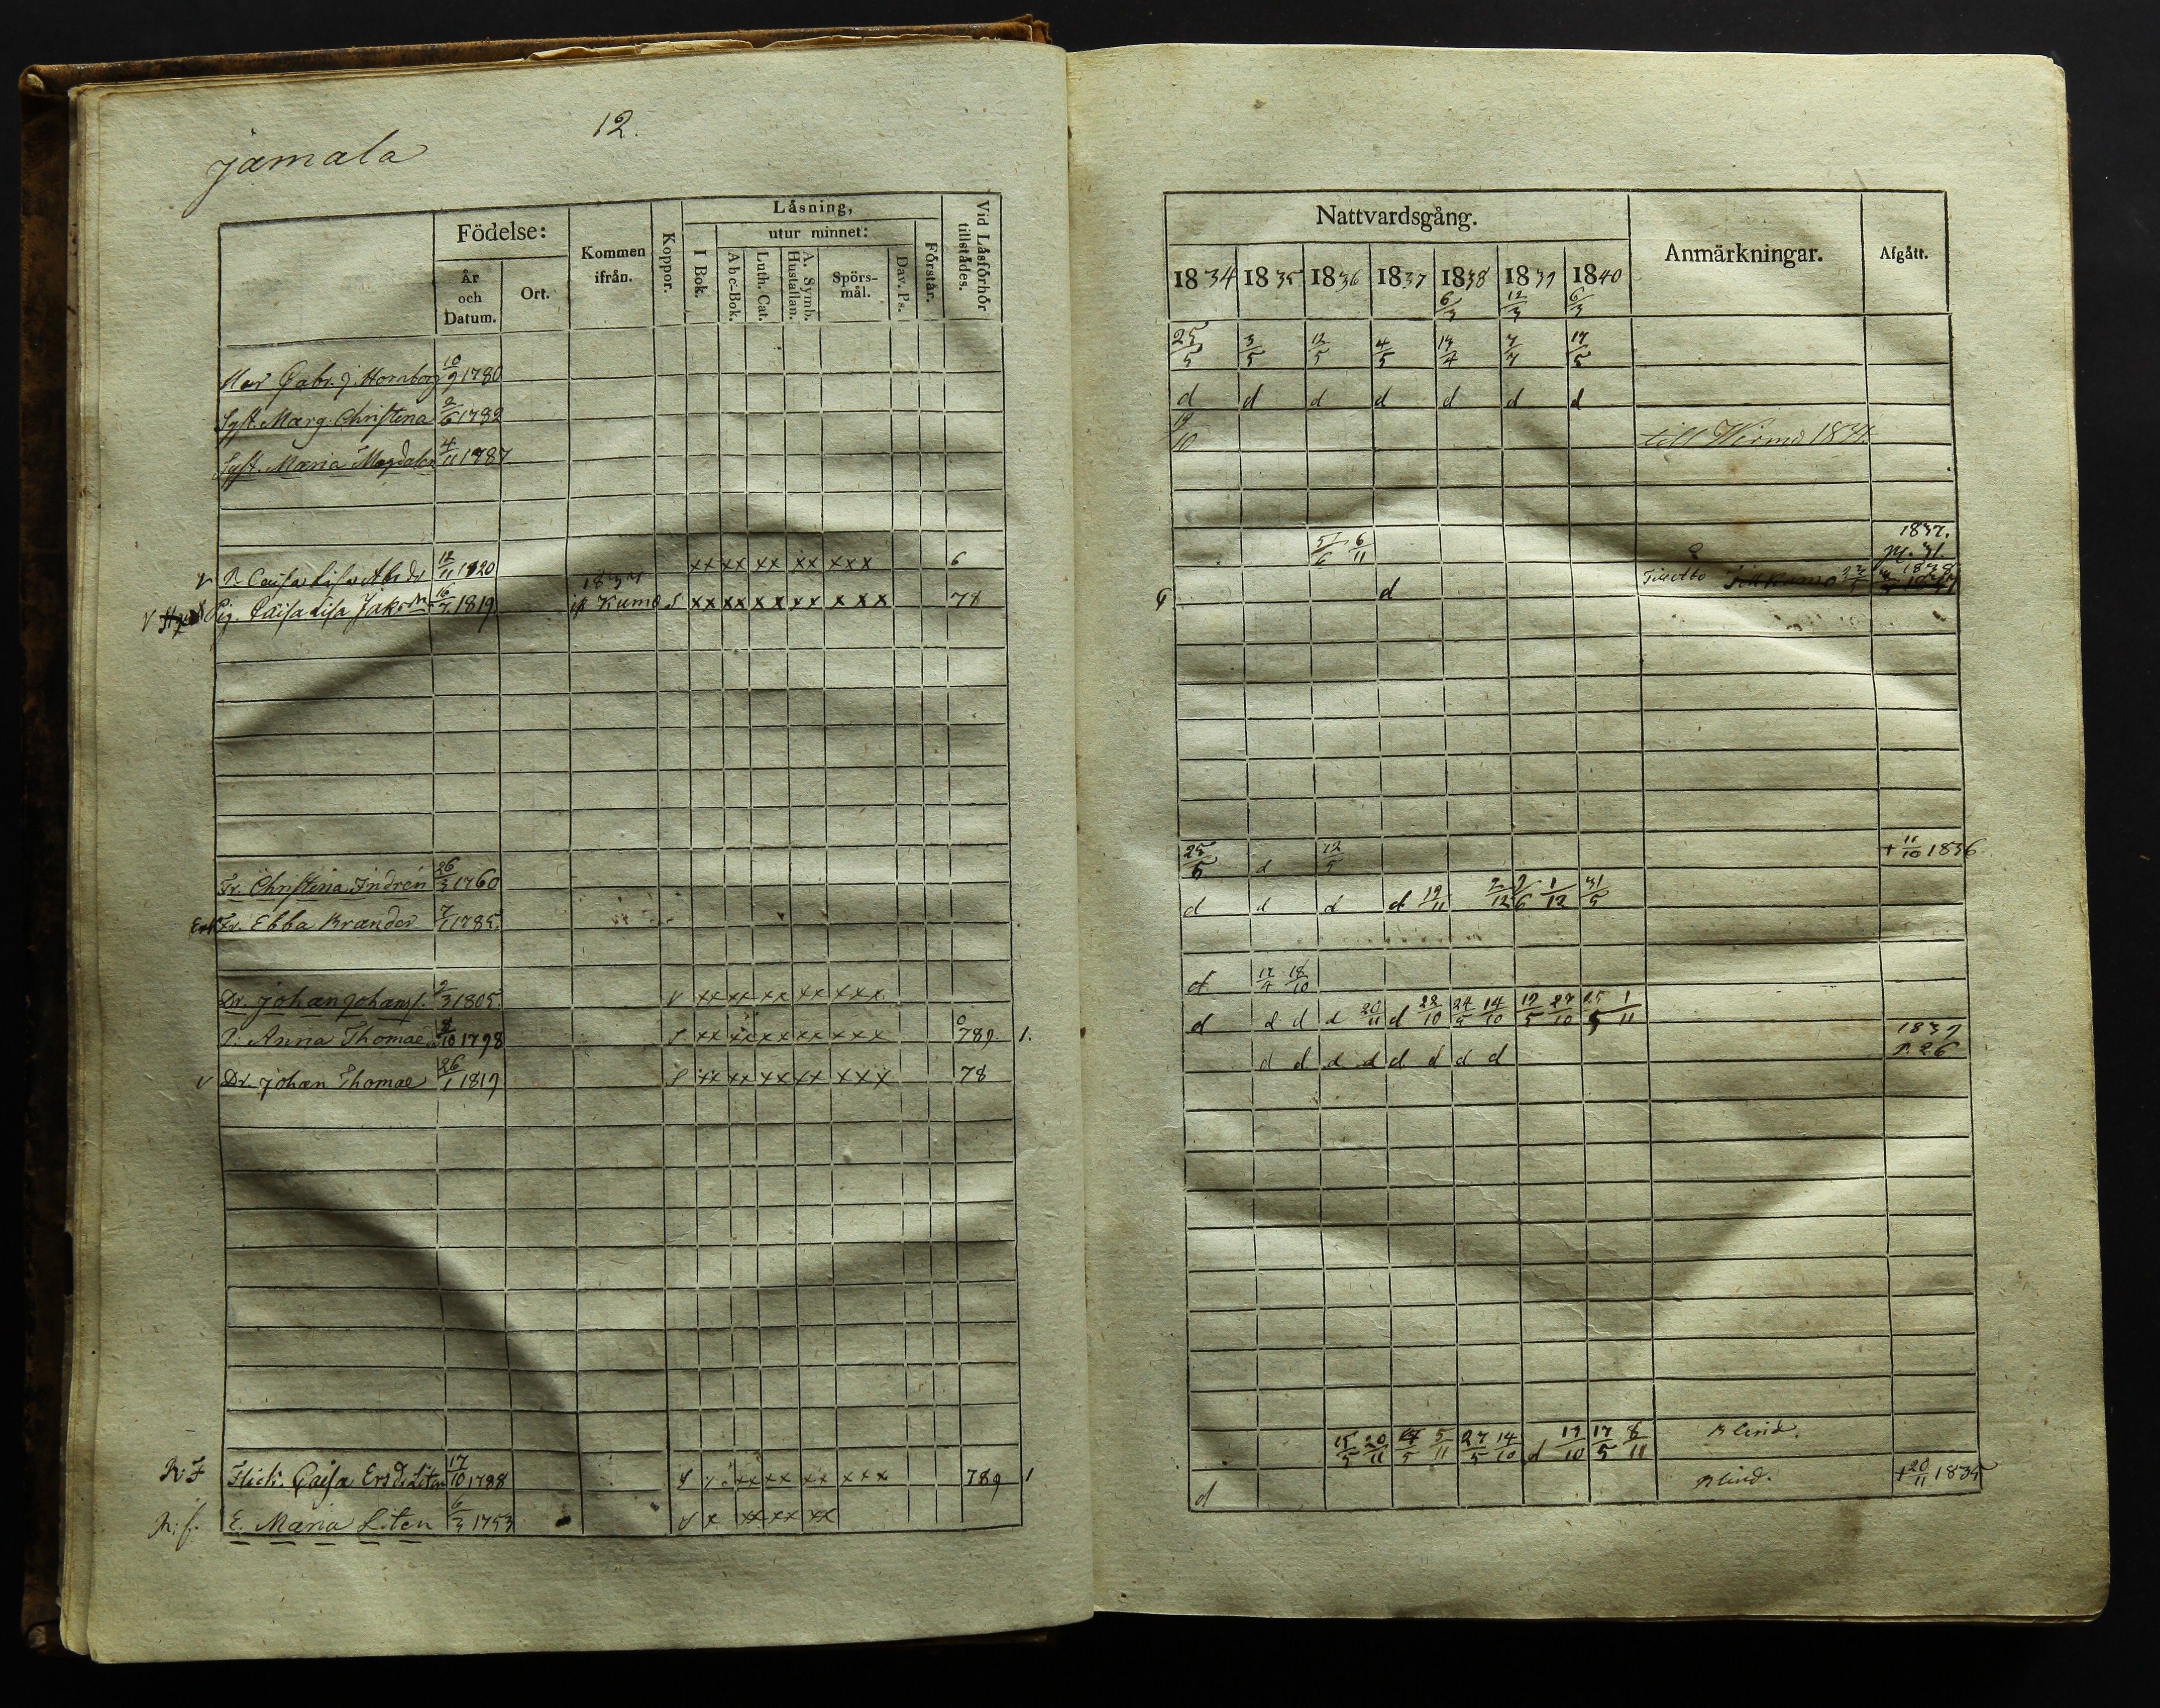 12.
Jamala
Födelse:
År och Datum.
Ort.
Kommen ifrån.
Koppor.
Läsning,
I Bok.
utur minnet:
Abc-Bok.
Luth. Cat.
A. Symb. Hustaflan.
Spörsmål.
Dav. Ps.
Förstår.
Vid Läsförhör tillstädes.
Gabr. J. Hornborg 10/9 1780
Syst. Marg. Christina 2/6 1782
Syst. Maria Magdalen 4/11 1787
v P. Caisa Lisa Abrdr 12/11 1820 xx xx xx xx xxx 6
1834
v Pig. Caisa Lisa Jak 16/7 1819 Kumo S xx xx xx xx xxx 78
Fr. Christina Indren 26/3 1760
Enk. Fr. Ebba Brander 7/1 1785.
Dr. Johan Johanss. 2/3 1805. v xx xx xx xx xxx.
P. Anna Thomae 10 1798 S xx xx xx xx xxx 789. 1.
v Dr. Johan Thomae 26/1 1819 S xx xx xx xx xxx 78
R. F Flick. Caisa Ersdr Liten 17/10 1788 xx xx xx xxx 789 1
R. f. E. Maria Liten 6/3 1753 v x xx xx xx
Nattvardsgång.
Anmärkningar.
Afgått.
1834 1835 1836 1837 1838 1839 1840
6/3 12/3 6/3
25/5 3/5 12/5 4/5 17/5
d d d d d d d
till Wirmo 1834.
5/6 6/11 1837.
d Till Kumo 1838
25/5 d 12/5 + 11/10 1836
d d d d 19/11 2/12 2/6 1/12 31/5
d 17/4 18/10
d d d d 20/11 d 22/10 24/5 14/10 12/5 27/10 25/5 1/11
d d d d d d d d 1839 p. 26
15/5 20/11 5/11 27/5 14/10 d 19/10 17/5 8/11 Blind.
d Blind. + 20/11 1835